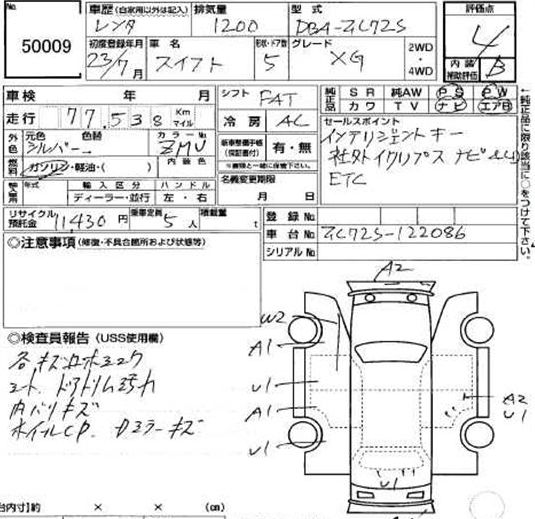 No. 50009
車歴 (自家用以外は記入) レンタ
排気量 1200
型式 DBA-ZC72S
評価点 4
初度登録年月 23/7月
車名 スイフト
形状・ドア数 5
グレード XG
2WD
・
4WD
内装
補助評価 B
車検 年 月
走行 77.538 Km マイル
シフト FAT
冷房 AC
純正品 SR 純AW PS PW
カワ TV ナビ エアB
←純正品に限り該当に○をつけて下さい。
外色 元色 シルバー 色替
カラーNo. ZMU
内装色
燃料 ガソリン・軽油・( )
新車整備手帳(保証書付) 有・無
※書類と一緒に保管下さい。
セールスポイント
インテリジェントキー
社外イクリプス ナビ
ETC
年式
輸入区分 ディーラー・並行
ハンドル 左・右
名義変更期限 月 日
リサイクル預託金 11430円
乗車定員 5人
積載量 t
登録No.
車台No. ZC72S-122086
シリアルNo.
◎注意事項 (修復・不具合箇所および状態等)
◎検査員報告 (USS使用欄)
各キズ
シート、ドアトリム汚れ
内バリキズ
ホイールCP. ドミラーキズ
A2
W2
A1
U1
A1
U1
A2
U1
U1
台内寸]約 × × (cm)